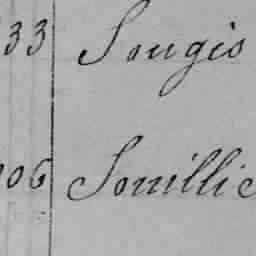 33 Sougis
06 Souillic